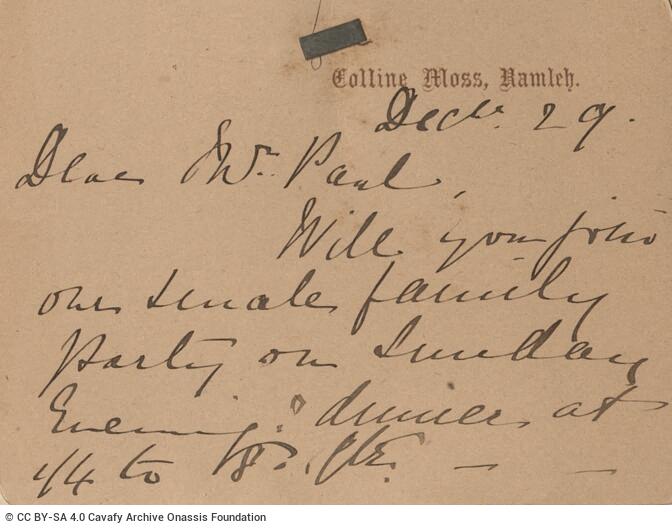 Colline Moss, Ramleh.
Decbr. 29.
Dear Mr. Paul,
Will you join
our small family
party on Sunday
Evening? dinner at
1/4 to 8.
© CC BY-SA 4.0 Cavafy Archive Onassis Foundation